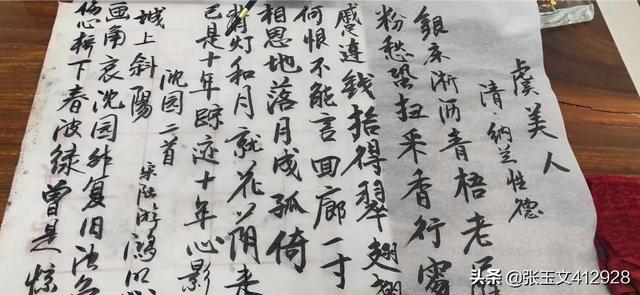 虞美人
清·纳兰性德
银床淅沥青梧老屧
粉愁蛩扫采香行處
蹙連錢拾得翠翘
何恨不能言回廊一寸
相思地落月成孤倚
背灯和月就花阴来
已是十年踪迹十年心影
沈园二首
宋陆游
城上斜陽
画角哀沈园非复旧池
伤心桥下春波绿曾是惊
头条 @张玉文412928